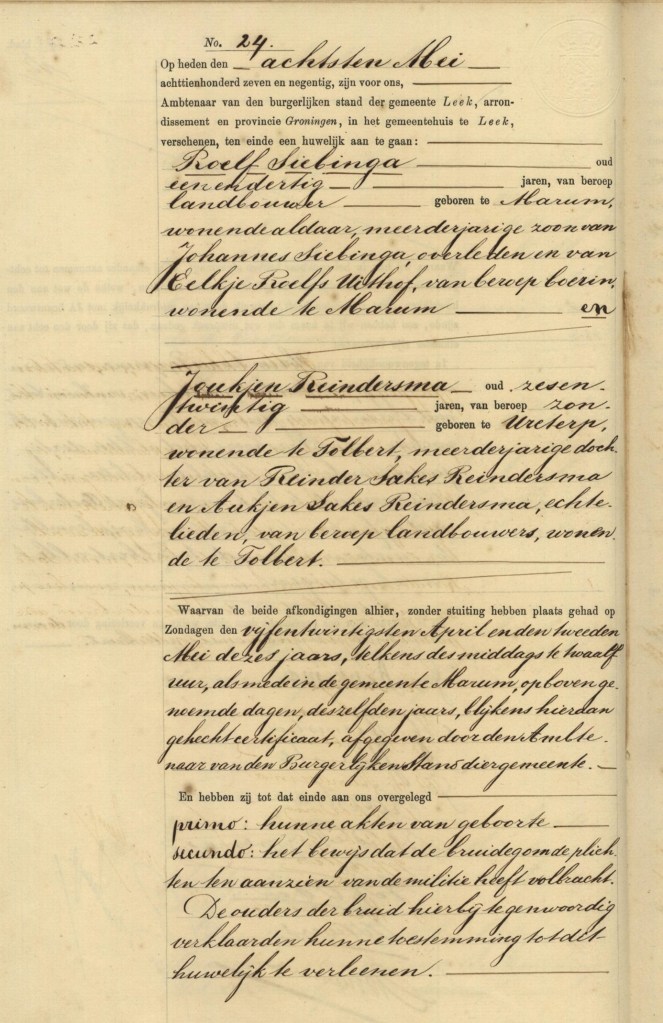 No. 24.
Op heden den achtsten Mei
achttienhonderd zeven en negentig, zijn voor ons,
Ambtenaar van den burgerlijken stand der gemeente Leek, arron-
dissement en provincie Groningen, in het gemeentehuis te Leek,
verschenen, ten einde een huwelijk aan te gaan:
Roelf Siebinga oud
eenendertig jaren, van beroep
landbouwer geboren te Marum,
wonende aldaar, meerderjarige zoon van
Johannes Siebinga, overleden en van
Eelkje Roelfs Uithof, van beroep boerin,
wonende te Marum en
Joukjen Reindersma oud zesen-
twintig jaren, van beroep zon-
der geboren te Ureterp,
wonende te Tolbert, meerderjarige doch-
ter van Reinder Sakes Reindersma
en Aukjen Sakes Reindersma, echte-
lieden, van beroep landbouwers, wonen-
de te Tolbert.
Waarvan de beide afkondigingen alhier, zonder stuiting hebben plaats gehad op
Zondagen den vijfentwintigsten April en den tweeden
Mei dezes jaars, telkens des middags te twaalf
uur, alsmede in de gemeente Marum, op bovenge-
noemde dagen, deszelfden jaars, blijkens hieraan
gehecht certificaat, afgegeven door den Ambte-
naar van den Burgerlijken Stand dier gemeente.
En hebben zij tot dat einde aan ons overgelegd
primo: hunne akten van geboorte
secundo: het bewijs dat de bruidegom de plich-
ten ten aanzien van de militie heeft volbracht.
De ouders der bruid hierbij tegenwoordig
verklaarden hunne toestemming tot dit
huwelijk te verleenen.